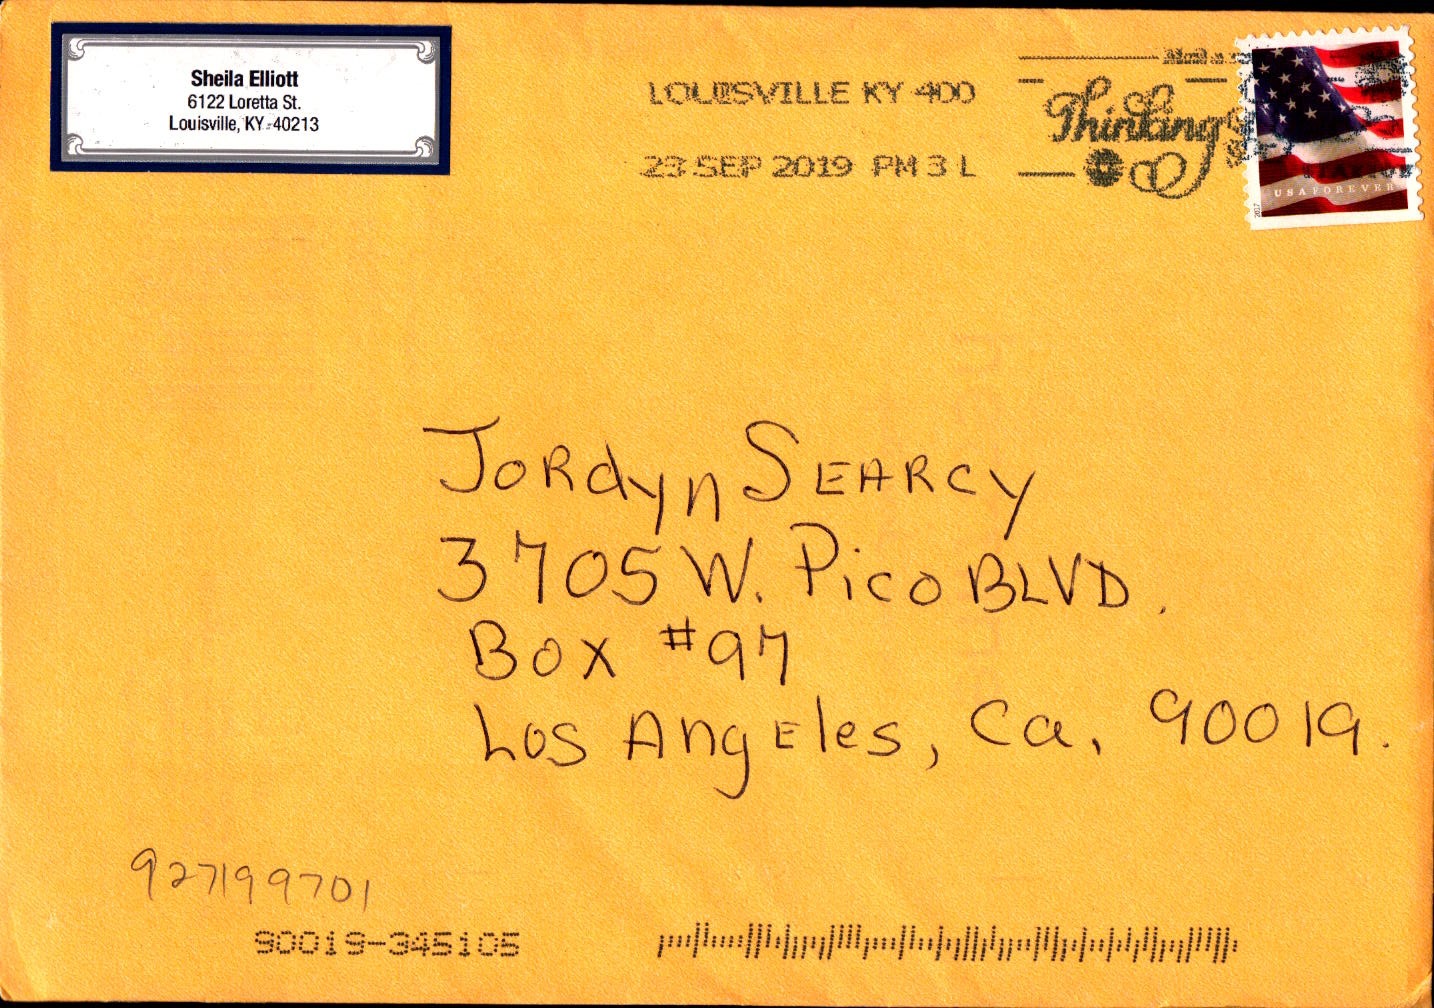 Sheila Elliott
6122 Loretta St.
Louisville, KY 40213
LOUISVILLE KY 400
23 SEP 2019 PM 3 L
Thinking
USA FOREVER
2017
Jordyn Searcy
3705 W. Pico BLVD.
Box #97
Los Angeles, Ca, 90019.
927199701
90019-345105